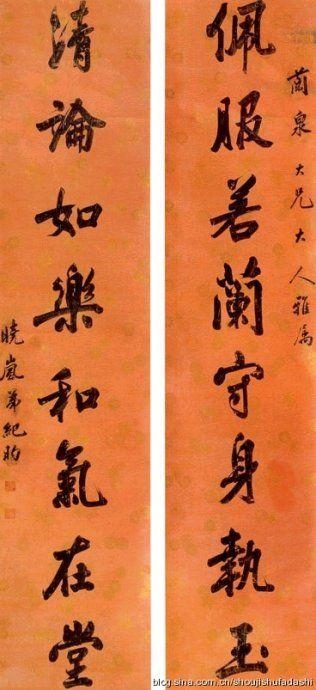 蘭泉大兄大人雅属
佩服若蘭守身執玉
清論如樂和氣在堂
曉嵐弟紀昀
blog.sina.com.cn/shoujishufadashi